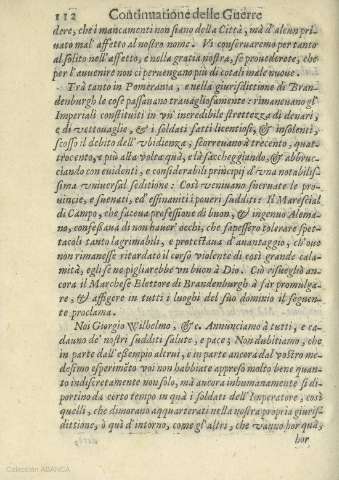 112 Continuatione delle Guerre
dere, che i mancamenti non siano della Città, mà d'alcun pri-
uato mal'affetto al nostro nome. Vi conseruaremo per tanto
al solito nell'affetto, e nella gratia nostra, se prouederete, che
per l'auuenire non ci peruengano più di cotali male nuoue.
Trà tanto in Pomerania, e nella giurisdittione di Bran-
denburgh le cose passauano trauagliosamente: rimaneuano gl'
Imperiali constituiti in vn'incredibile strettezza di denari,
e di vettouaglie, & i soldati fatti licentiosi, & insolenti,
scosso il debito dell'vbidienza, scorreuano à trecento, quat-
trocento, e più alla volta quà, e là saccheggiando, & abbruc-
ciando con euidenti, e considerabili principij d'vna notabilis-
sima vniuersal seditione: Così veniuano sneruate le pro-
uincie, e suenati, ed essinaniti i poueri sudditi: Il Marescial
di Campo, che faceua professione di buon, & ingenuo Alema-
no, confessaua di non hauer'occhi, che sapessero tolerare spet-
tacoli tanto lagrimabili, e protestaua d'auantaggio, ch'oue
non rimanesse ritardato il corso violente di così grande cala-
mità, egli se ne pigliarebbe vn buon à Dio. Ciò risuegliò an-
cora il Marchese Elettore di Brandenburgh à far promulga-
re, & affigere in tutti i luoghi del suo dominio il seguen-
te proclama.
Noi Giorgio Wilhelmo, &c. Annunciamo à tutti, e ca-
dauno de' nostri sudditi salute, e pace; Non dubitiamo, che
in parte dall'essempio altrui, e in parte ancora dal vostro me-
desimo esperimēto voi non habbiate appreso molto bene quan-
to indiscretamente non solo, mà ancora inhumanamente si di-
portino da certo tempo in quà i soldati dell'Imperatore, così
quelli, che dimorano acquarterati nella nostra propria giuris-
dittione, ò quà d'intorno, come gl'altri, che vanno hor quà,
hor
Colección ABANCA